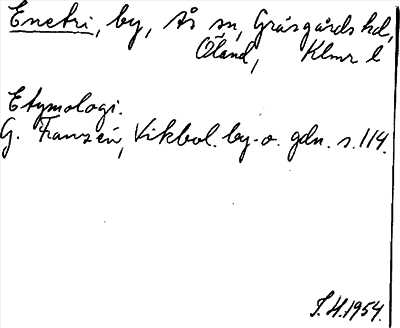 Enetri, by, Ås sn, Gräsgårds hd,
Öland, Klmr l
Etymologi.
G. Franzén, Vikbol. by- o. gdn. s. 114.
S.H. 1954.